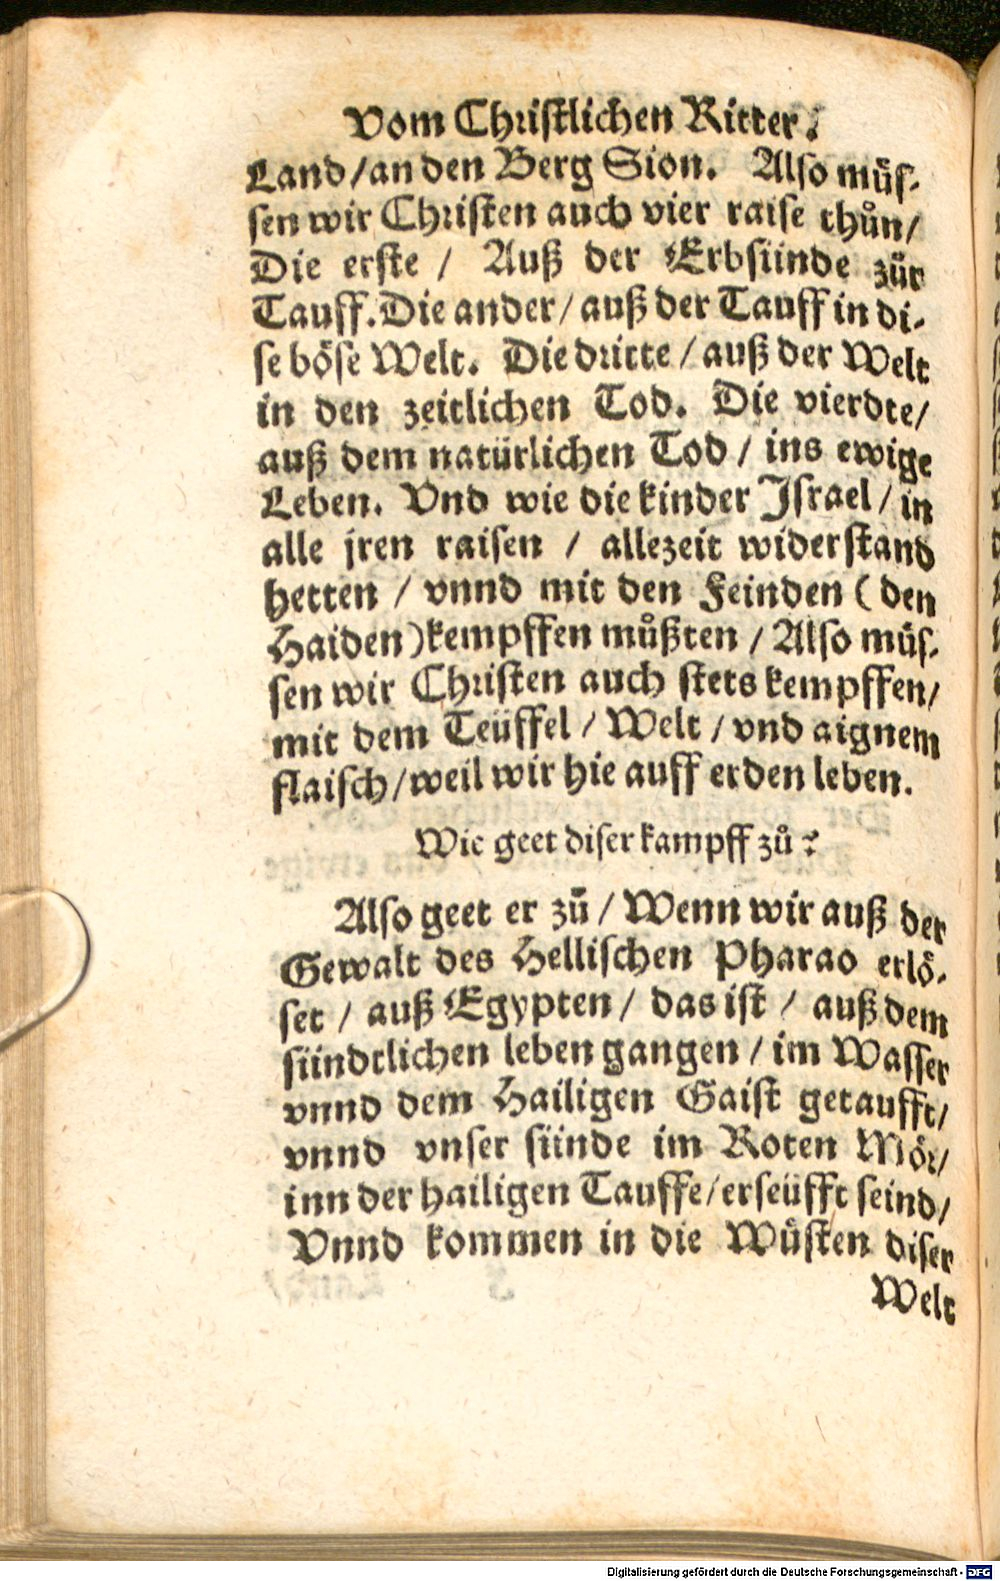 Vom Christlichen Ritter.
Land/an den Berg Sion. Also müs-
sen wir Christen auch vier raise thůn/
Die erste / Auß der Erbsünde zůr
Tauff. Die ander/ auß der Tauff in di-
se böse Welt. Die dritte / auß der Welt
in den zeitlichen Tod. Die vierdte/
auß dem natürlichen Tod / ins ewige
Leben. Vnd wie die kinder Jsrael / in
alle jren raisen / allezeit widerstand
hetten / vnnd mit den Feinden ( den
Haiden) kempffen můßten / Also müs-
sen wir Christen auch stets kempffen/
mit dem Teüffel / Welt / vnd aignem
flaisch/weil wir hie auff erden leben.
Wie geet diser kampff zů?
Also geet er zů / Wenn wir auß der
Gewalt des Hellischen Pharao erlö-
set / auß Egypten / das ist / auß dem
sündtlichen leben gangen / im Wasser
vnnd dem Hailigen Gaist getaufft/
vnnd vnser sünde im Roten Mör/
inn der hailigen Tauffe/erseüfft seind/
Vnnd kommen in die Wüsten diser
Welt
Digitalisierung gefördert durch die Deutsche Forschungsgemeinschaft - DFG